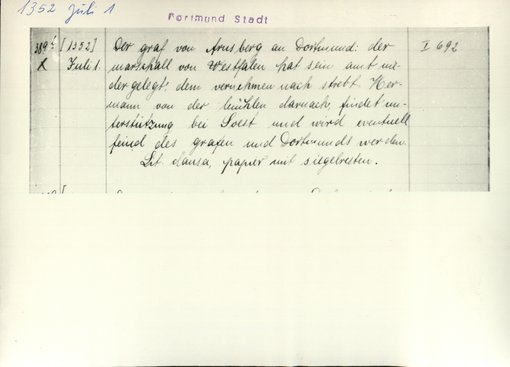 1352 Juli 1
Dortmund Stadt
[1352] Der graf von Arnsberg an Dortmund: der I 692
X Juli 1. marschall von Westfalen hat sein amt nie-
dergelegt; dem vernehmen nach strebt Her-
mann von der mühlen darnach, findet un-
terstützung bei Soest und wird eventuell
feind des grafen und Dortmunds werden.
Lit. clausa, papier mit siegelresten.